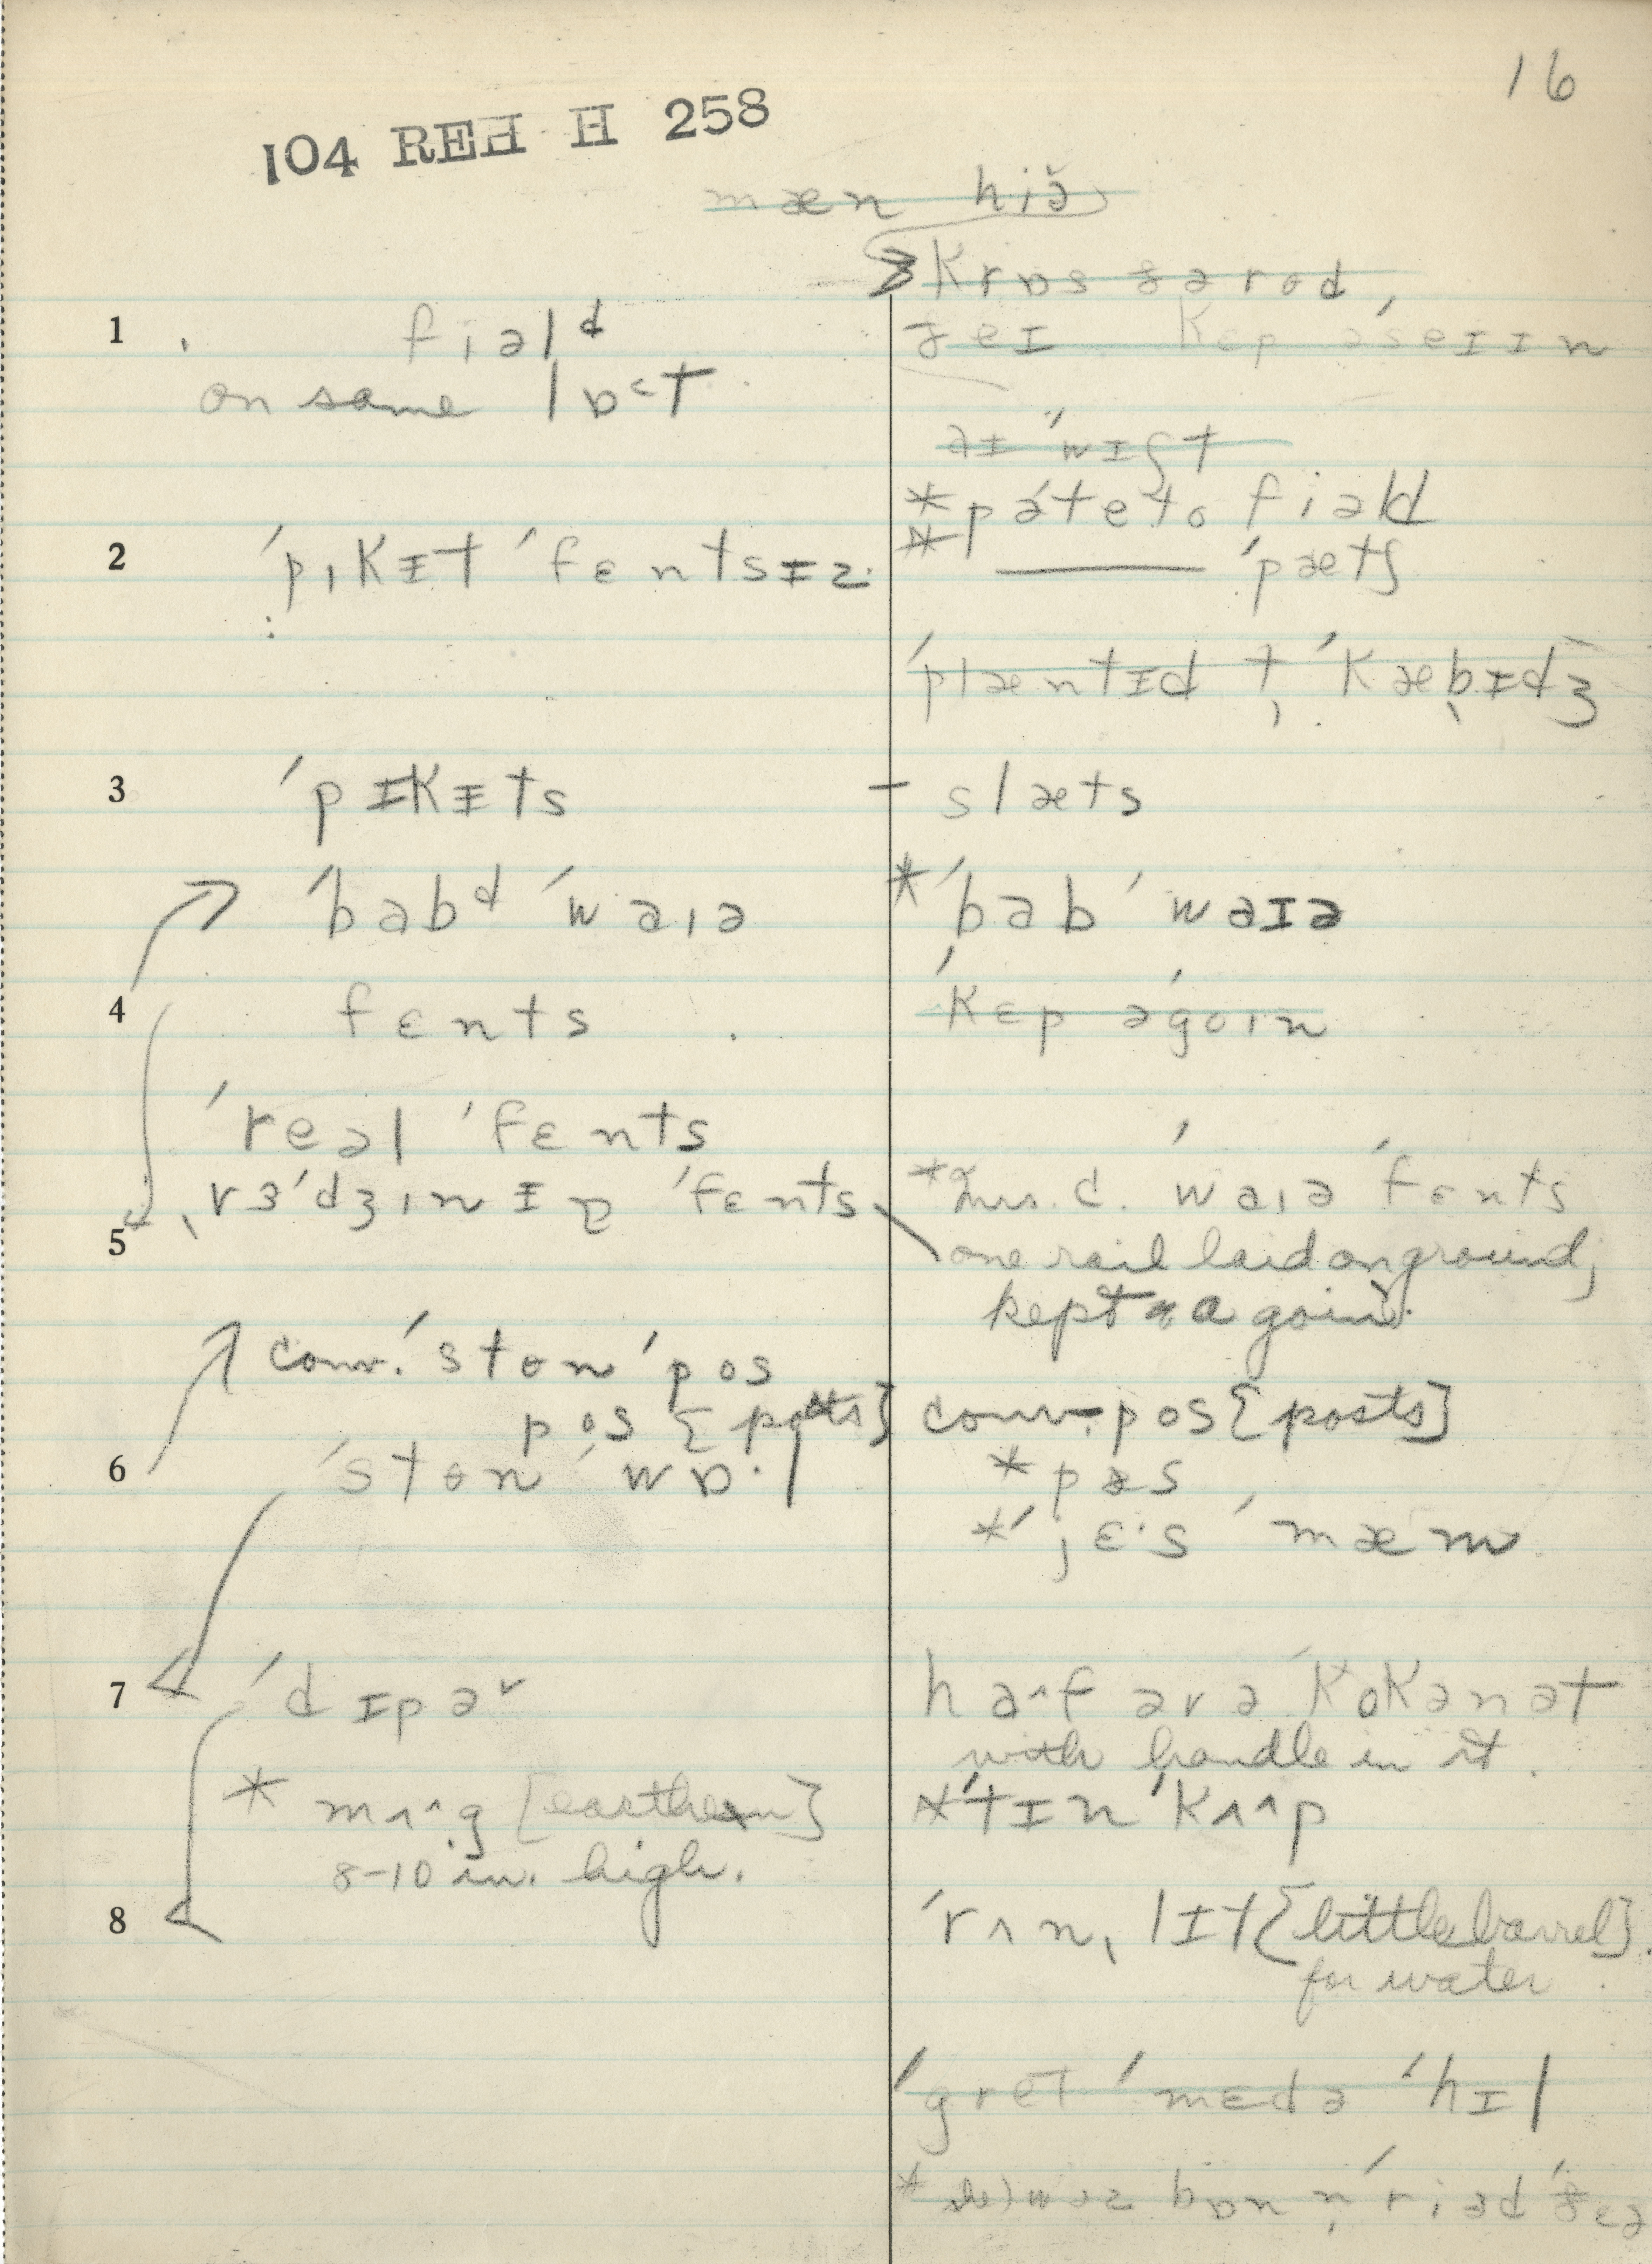 16
104 REH H 258
mæn hiə̆
Krɒs ðə rod,
ðeɪ Kɛp ə'seɪɪn
1 fiəlᵈ
on same lɒ˂t
aɪ 'wɪʃt
*pə'teto fiəld
2 'pɪKɪt 'fɛntsɪz
* ——— 'pætʃ
'plæntɪd t̩ 'Kæbɪdʒ
3 'pɪKɪts – slæts
'babᵈ 'waɪə
*'bab 'waɪə
4 fɛnts
'Kɛp ə'goɪn
'reəl 'fɛnts
ˌvɜ'dʒɪnɪə 'fɛnts
*Mrs. C. 'waɪə 'fɛnts
5
one rail laid on ground,
kept a goin.
conv. 'ston 'pos
pos [posts]
conv. pos [posts]
6 'ston 'wɒ·l
*pos
*'jɛ·s 'mæm
7 'dɪpəʳ
ha˄f əv ə 'KoKənət
with handle in it.
* mʌ˄g [earthen]
8-10 in. high.
*'tɪn 'Kʌ˄p
8
'rʌnˌlɪt [little barrel]
for water
'gret 'mɛdə 'hɪl